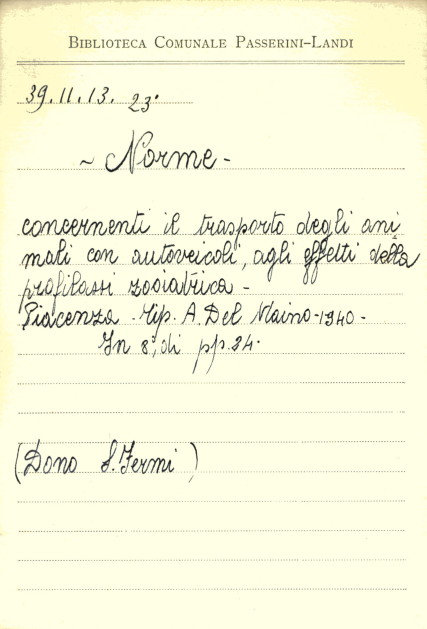 BIBLIOTECA COMUNALE PASSERINI-LANDI
39.11.13. 23.
~ Norme -
concernenti il trasporto degli ani
mali con autoveicoli, agli effetti della
profilassi zooiatrica -
Piacenza - Tip. A. Del Maino - 1940 -
In 8°, di pp. 24.
(Dono S. Fermi)